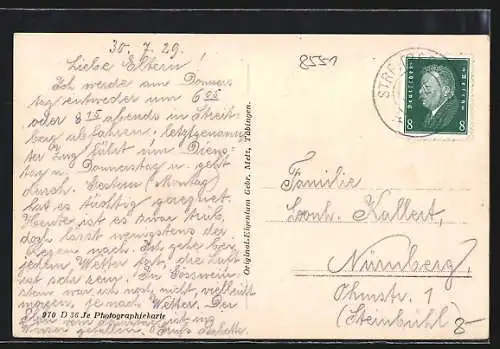 30. 7. 29.
8551
Liebe Eltern!
Ich werde am Donners
tag entweder um 6 05
oder 8 15 abends in Streit-
berg abfahren, letztgenann
ter Zug fährt nur Diens-
tag u. Donnerstag u. geht
durch. Gestern (Montag)
hat es tüchtig geregnet.
Heute ist es zwar trüb,
doch lässt wenigstens der
Regen nach. Ich gehe bei
jedem Wetter fort, die Luft
ist sehr rein. In Gösswein
stein war ich noch nicht, vielleicht
morgen, je nach Wetter. Der
970 D 36 Je Photographiekarte
Original-Eigentum Gebr. Metz, Tübingen.
Deutsches Reich
8 8
STRE
Familie
Leonh. Kallert,
Nürnberg,
Ohmstr. 1
(Steinbühl)
8-